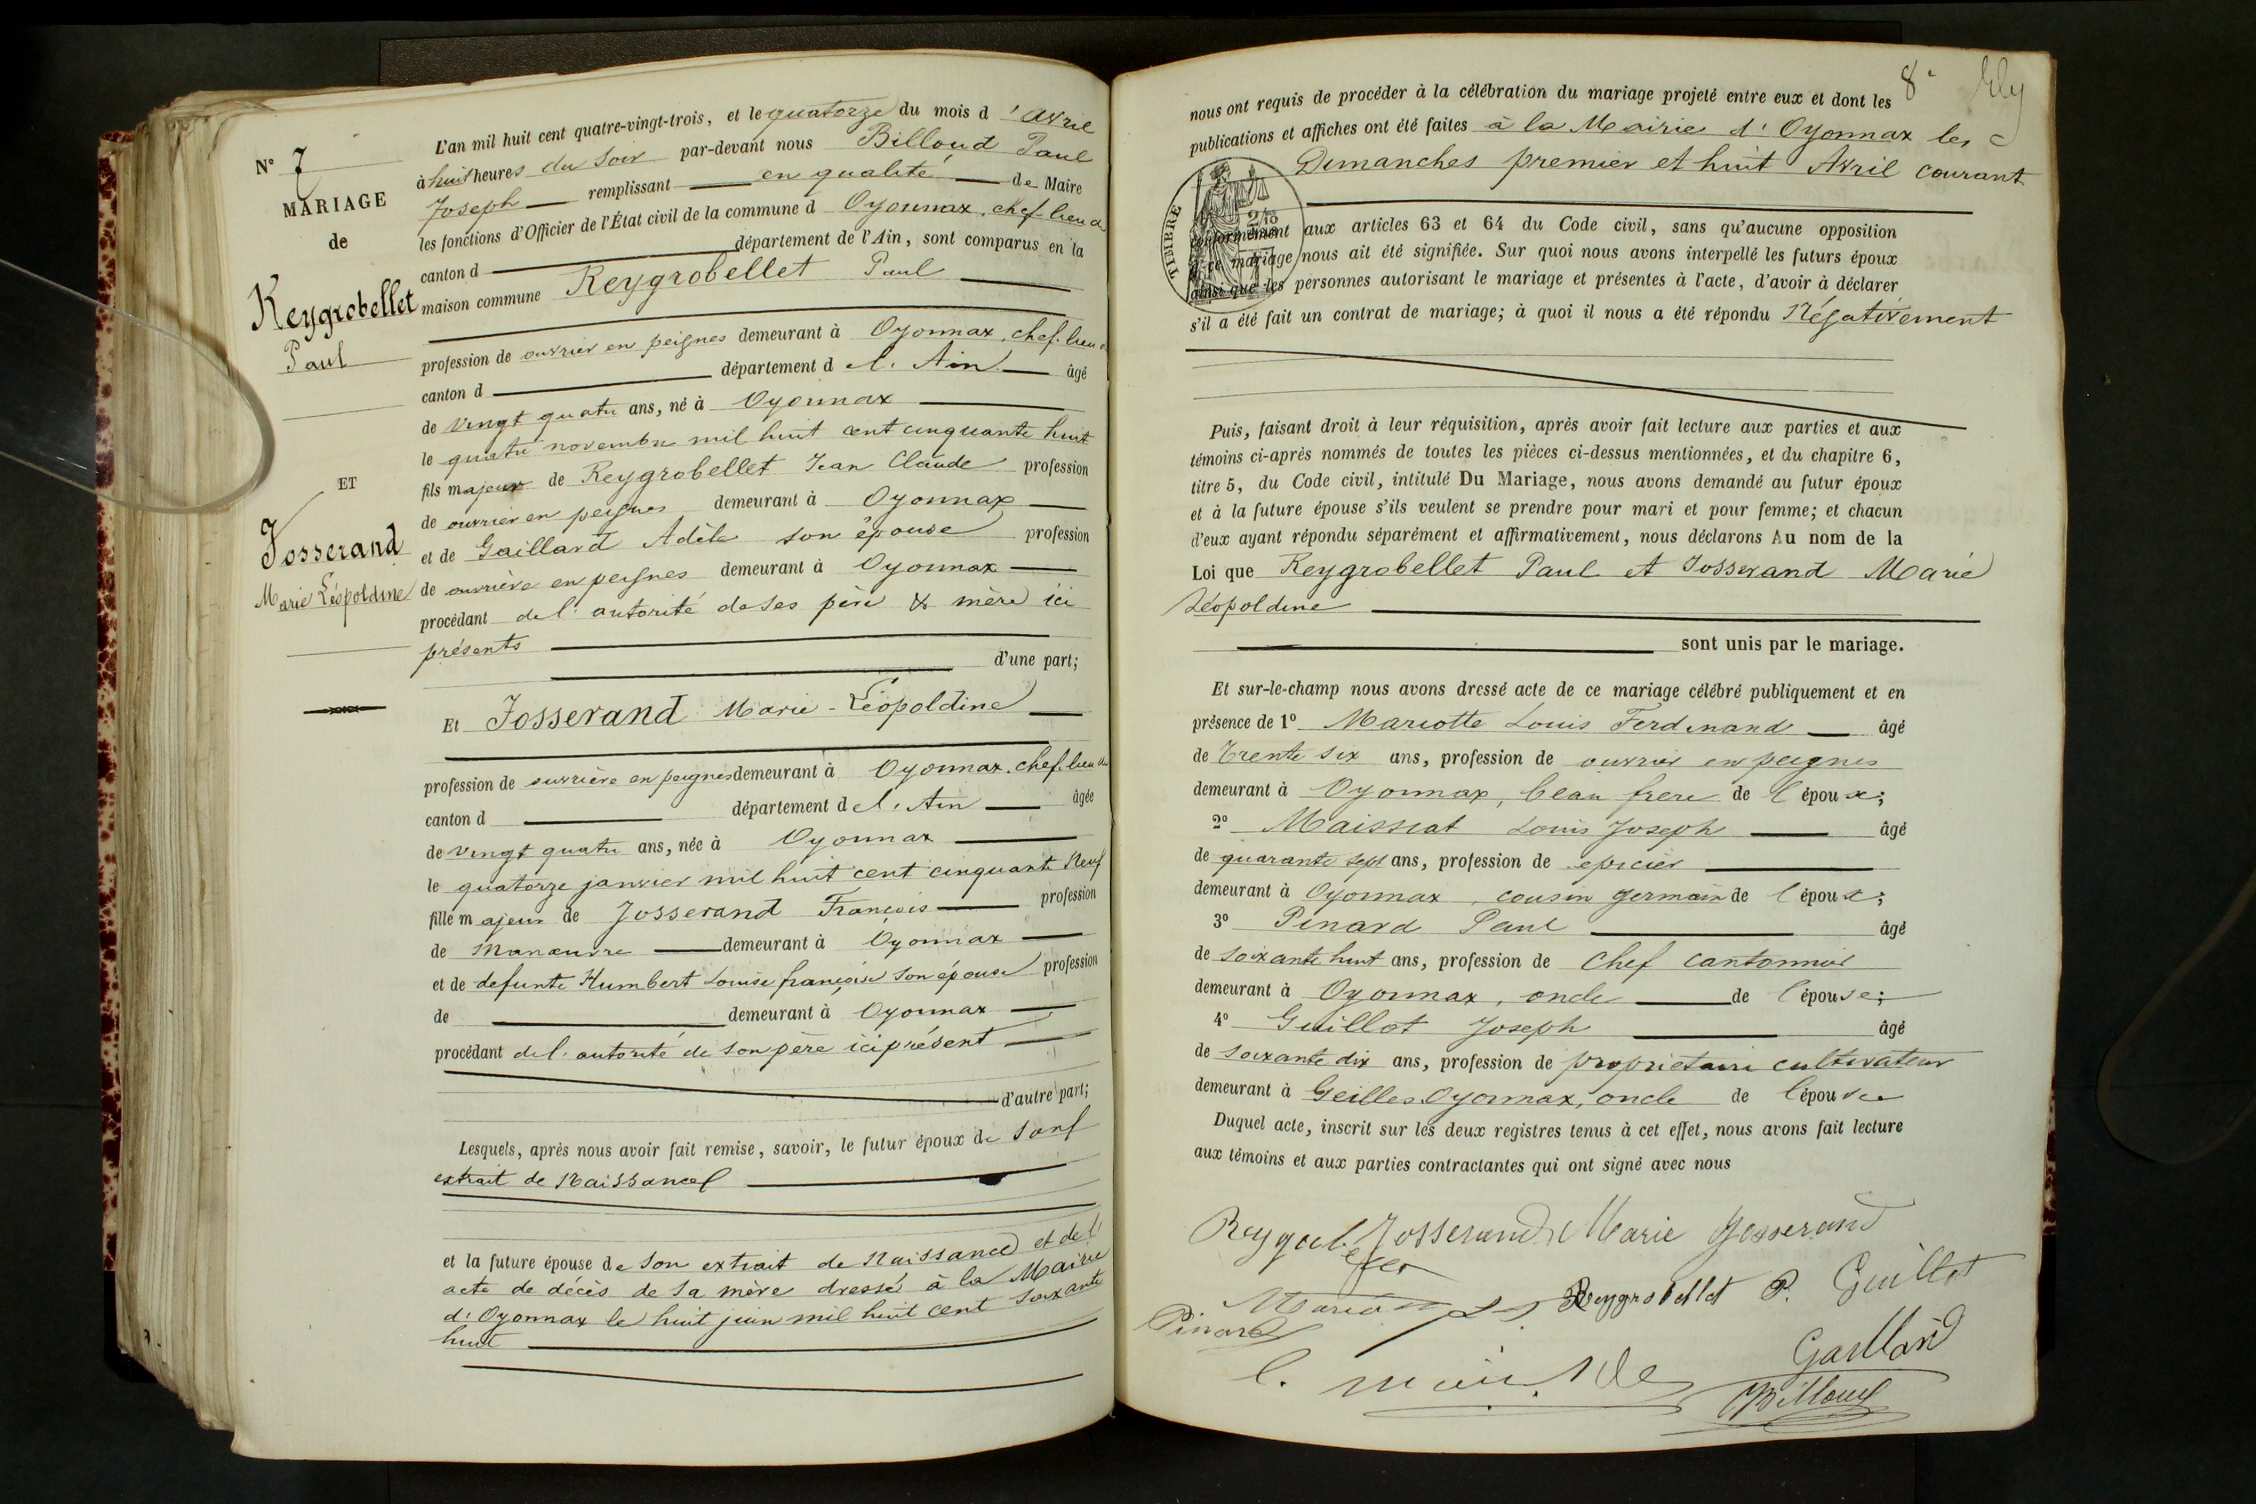 N° 7
MARIAGE
de
Reygrobellet
Paul
ET
Josserand
Marie Léopoldine
L'an mil huit cent quatre-vingt-trois, et le quatorze du mois d'Avril
à huit heures du soir par-devant nous Billoud Paul
Joseph remplissant en qualité de Maire
les fonctions d'Officier de l'État civil de la commune d Oyonnax, chef-lieu de
canton d département de l'Ain, sont comparus en la
maison commune Reygrobellet Paul
profession de ouvrier en peignes demeurant à Oyonnax, chef-lieu de
canton d département de l'Ain âgé
de vingt quatre ans, né à Oyonnax
le quatre novembre mil huit cent cinquante huit
fils majeur de Reygrobellet Jean Claude profession
de ouvrier en peignes demeurant à Oyonnax
et de Gaillard Adèle son épouse profession
de ouvrière en peignes demeurant à Oyonnax
procédant de l'autorité de ses père & mère ici
présents
d'une part;
Et Josserand Marie-Léopoldine
profession de ouvrière en peignes demeurant à Oyonnax, chef-lieu de
canton d département de l'Ain âgée
de vingt quatre ans, née à Oyonnax
le quatorze janvier mil huit cent cinquante neuf
fille majeur de Josserand François profession
de manœuvre demeurant à Oyonnax
et de defunte Humbert Louise françoise son épouse profession
de demeurant à Oyonnax
procédant de l'autorité de son père ici présent
d'autre part;
Lesquels, après nous avoir fait remise, savoir, le futur époux de son
extrait de Naissance
et la future épouse de son extrait de Naissance et de l'
acte de décès de sa mère dressé à la Mairie
d'Oyonnax le huit juin mil huit cent soixante
huit
8e
nous ont requis de procéder à la célébration du mariage projeté entre eux et dont les
publications et affiches ont été faites à la Mairie d'Oyonnax les
Dimanches premier et huit Avril courant
TIMBRE
conformément aux articles 63 et 64 du Code civil, sans qu'aucune opposition
à ce mariage nous ait été signifiée. Sur quoi nous avons interpellé les futurs époux
ainsi que les personnes autorisant le mariage et présentes à l'acte, d'avoir à déclarer
s'il a été fait un contrat de mariage; à quoi il nous a été répondu Négativement
Puis, faisant droit à leur réquisition, après avoir fait lecture aux parties et aux
témoins ci-après nommés de toutes les pièces ci-dessus mentionnées, et du chapitre 6,
titre 5, du Code civil, intitulé Du Mariage, nous avons demandé au futur époux
et à la future épouse s'ils veulent se prendre pour mari et pour femme; et chacun
d'eux ayant répondu séparément et affirmativement, nous déclarons Au nom de la
Loi que Reygrobellet Paul et Josserand Marie
Léopoldine
sont unis par le mariage.
Et sur-le-champ nous avons dressé acte de ce mariage célébré publiquement et en
présence de 1° Mariotte Louis Ferdinand âgé
de Trente six ans, profession de ouvrier en peignes
demeurant à Oyonnax, beau frere de l époux;
2° Maissiat Louis Joseph âgé
de quarante sept ans, profession de epicier
demeurant à Oyonnax, cousin germain de l époux;
3° Pinard Paul âgé
de soixante huit ans, profession de Chef cantonnier
demeurant à Oyonnax, oncle de l épouse;
4° Guillot Joseph âgé
de soixante dix ans, profession de proprietaire cultivateur
demeurant à Geilles Oyonnax, oncle de l épouse
Duquel acte, inscrit sur les deux registres tenus à cet effet, nous avons fait lecture
aux témoins et aux parties contractantes qui ont signé avec nous
Josserand Marie Josserand
Reygrobellet P. Guillot
Pinard
Gaillard
Billoud